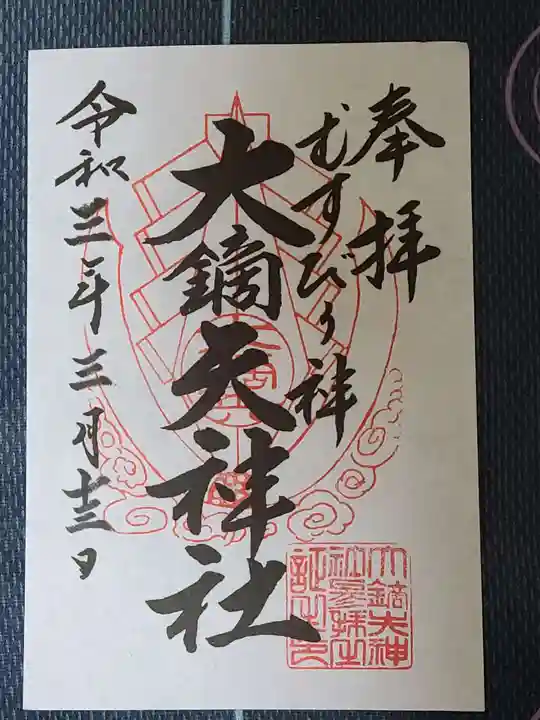 奉拝
むすびの神
大鏑矢神社
令和三年三月十三日
大鏑矢神
社参拝之
証之印